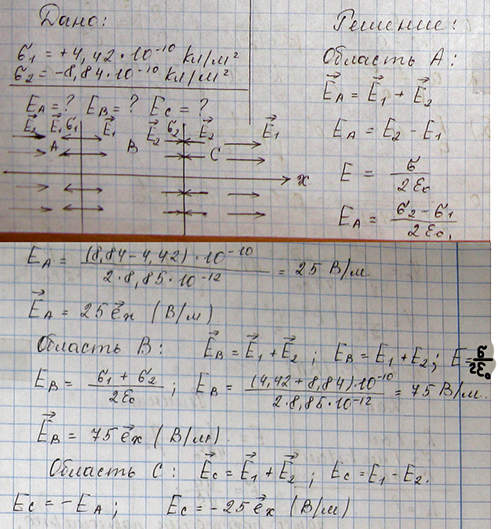 Дано:
σ₁ = +4,42·10⁻¹⁰ Кл/м²
σ₂ = -8,84·10⁻¹⁰ Кл/м²
E_A = ? E_B = ? E_C = ?
E⃗₂ E⃗₁ σ₁ E⃗₁ E⃗₂ σ₂ E⃗₂ E⃗₁
A B C
x
Решение:
Область A:
E⃗_A = E⃗₁ + E⃗₂
E_A = E₂ - E₁
E = σ/2ε₀
E_A = (σ₂ - σ₁)/2ε₀
E_A = (8,84-4,42)·10⁻¹⁰/2·8,85·10⁻¹² = 25 В/м
E⃗_A = 25e⃗x (В/м)
Область B: E⃗_B = E⃗₁ + E⃗₂ ; E_B = E₁ + E₂ ; E = σ/2ε₀
E_B = (σ₁ + σ₂)/2ε₀ ; E_B = (4,42+8,84)·10⁻¹⁰/2·8,85·10⁻¹² = 75 В/м.
E⃗_B = 75e⃗x (В/м).
Область C: E⃗c = E⃗₁ + E⃗₂ ; Ec = E₁ - E₂.
Ec = -E_A ; Ec = -25e⃗x (В/м)